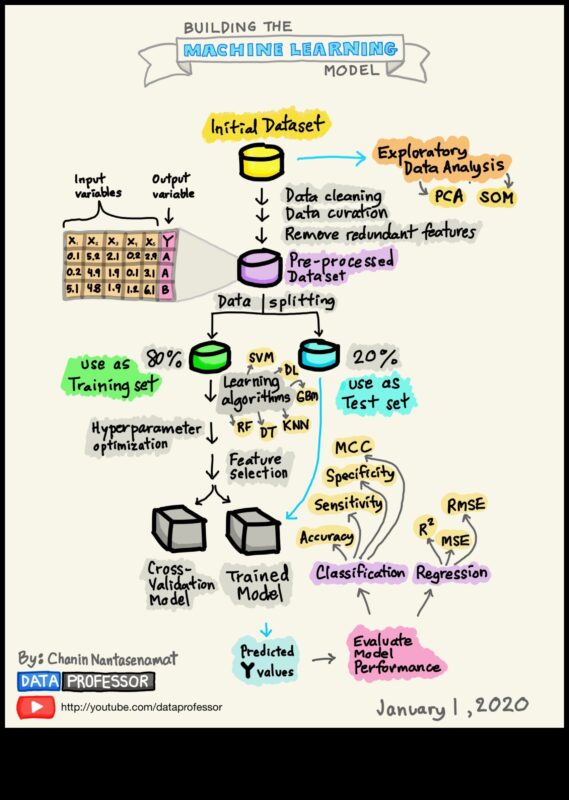 BUILDING THE
MACHINE LEARNING
MODEL
Initial Dataset
Exploratory
Data Analysis
PCA SOM
Input
variables
Output
variable
Data cleaning
Data curation
Remove redundant features
X, X, X, X, X, Y
0.1 5.2 2.1 0.2 2.9 A
0.2 4.9 1.9 0.1 3.1 A
5.1 4.8 1.9 1.2 6.1 B
Pre-processed
Dataset
Data splitting
80%
20%
use as
Training set
use as
Test set
SVM
DL
Learning
algorithms
GBM
RF DT KNN
Hyperparameter
optimization
Feature
selection
MCC
Specificity
Sensitivity
Accuracy
RMSE
R²
MSE
Cross-
Validation
Model
Trained
Model
Classification
Regression
Predicted
Y values
Evaluate
Model
Performance
By: Chanin Nantasenamat
DATA PROFESSOR
http://youtube.com/dataprofessor
January 1, 2020